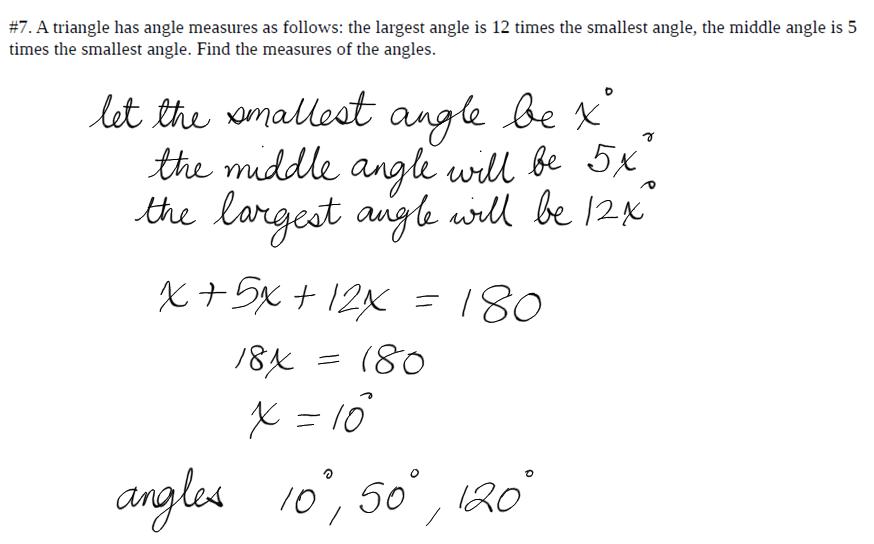 #7. A triangle has angle measures as follows: the largest angle is 12 times the smallest angle, the middle angle is 5
times the smallest angle. Find the measures of the angles.
let the smallest angle be x°
the middle angle will be 5x°
the largest angle will be 12x°
x + 5x + 12x = 180
18x = 180
x = 10°
angles 10°, 50°, 120°